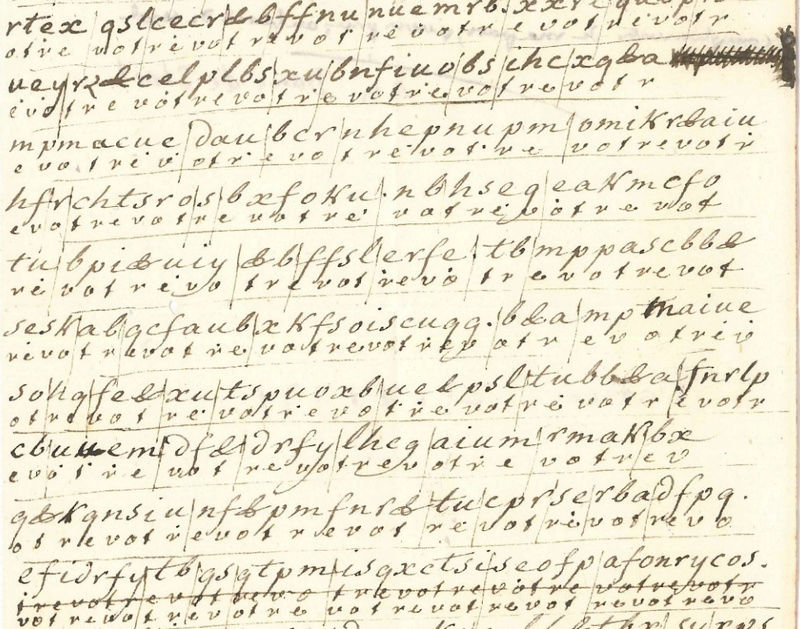 rtex qslcecr&bffnu nuemrb.xxre
otre votrevotrevotre votrevotr
ueyrz&celplbsxu bnfiuobs ihcxq&a
evotrevotrevotrevotrevotrevotr
mpmacue dau bcr nhepnupm omikr&aiu
evotrevotrevotrevotre votrevotr
hfrchtsros bxfoku.nbhseqeakmcfo
evotrevotrevotre votrevotrevot
tu bpi&uiy &bffslerfe.tbmppascbb&
revotrevotrevotrevotrevotrevot
seskabqcfaubxkfsoiscuqq.b&ampmaiue
revotrevotrevotrevotrevotrevotrev
sohqfe&xutspuoxbue&psltubb&afnrlp
otrevotrevotrevotrevotrevotrevotr
cbuuem df&drfylhcqaiumrmakbx
evotrevotrevotrevotrevotrev
q&kqnsiu nf&pmfnr&tucprserbadfpq.
otrevotrevotrevotrevotrevotrevo
efidrfytbqsqtpmisqxctsiseofpafonrycos.
trevotrevotrevotrevotrevotrevotr
votrevotrevotrevotrevotrevotrevotrevo